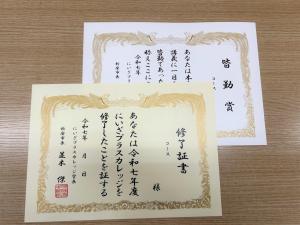 皆勤賞
コース
あなたは本
講義に一日
皆勤であった
称えここに
令和七年
にいざプラス
新座市長
修了証書
コース
様
あなたは令和七年度
にいざプラスカレッジを
修了したことを証する
令和七年　月　日
にいざプラスカレッジ学長
新座市長　並木　傑